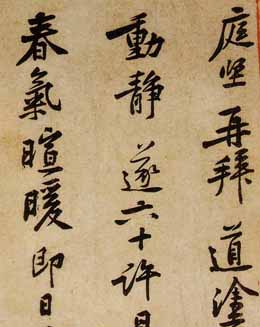 庭堅再拜道塗
動靜遂六十許日
春氣暄暖即日